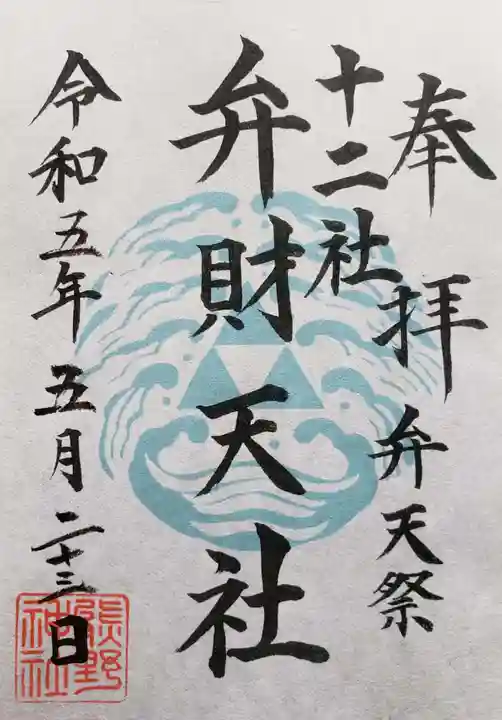 奉拝
弁天祭
十二社
弁財天社
令和五年五月二十三日
熊野
神社